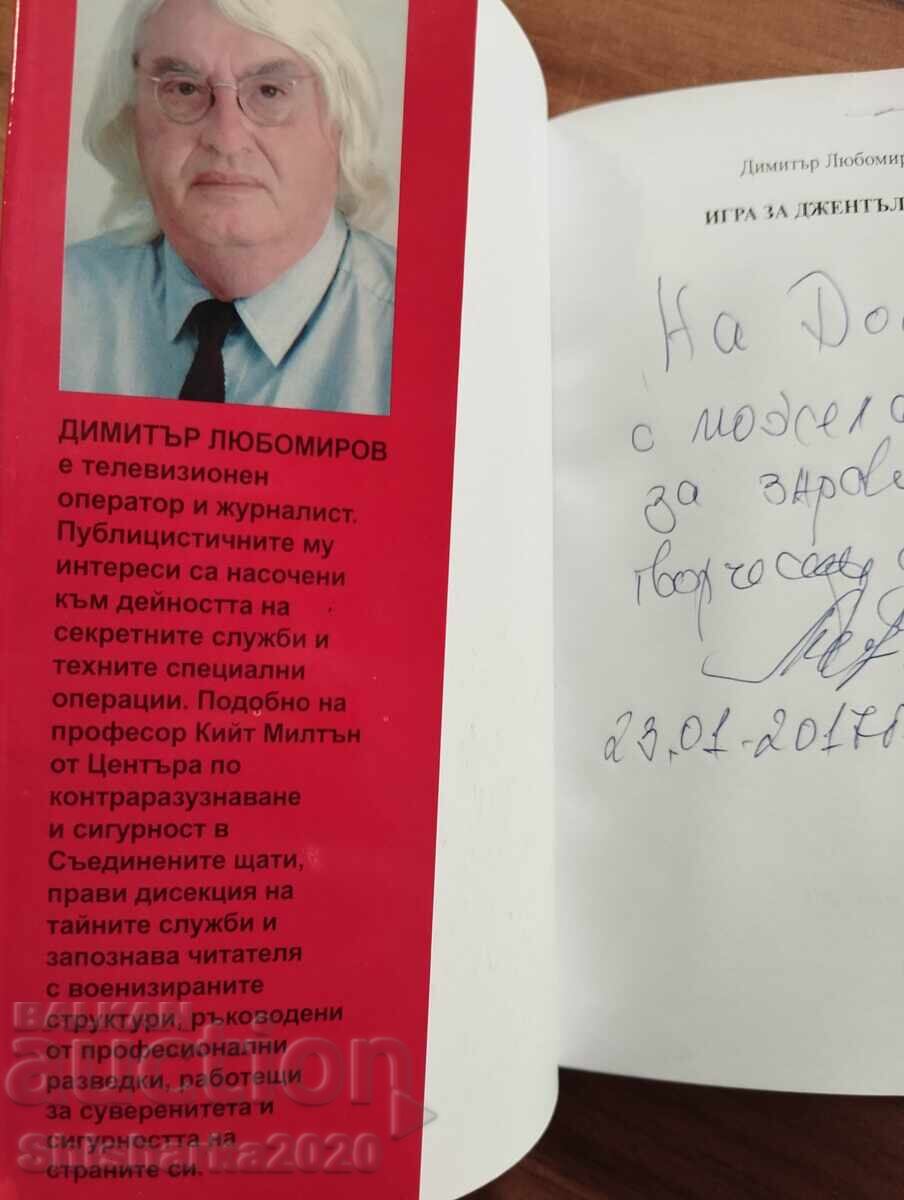 ДИМИТЪР ЛЮБОМИРОВ
е телевизионен
оператор и журналист.
Публицистичните му
интереси са насочени
към дейността на
секретните служби и
техните специални
операции. Подобно на
професор Кийт Милтън
от Центъра по
контраразузнаване
и сигурност в
Съединените щати,
прави дисекция на
тайните служби и
запознава читателя
с военизираните
структури, ръководени
от професионални
разведки, работещи
за суверенитета и
сигурността на
страните си.
Димитър Любомир
ИГРА ЗА ДЖЕНТЪЛ
На До
с пожела
за здраве
23.01.2017г
BALKAN
auction
Shisharka2020